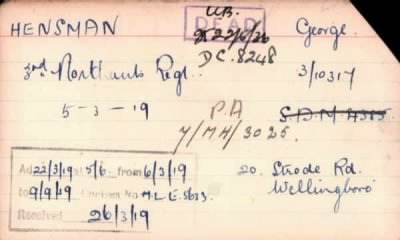 HENSMAN
U.B.
DEAD
22/6/26
George.
D.C. 8248
3rd Northants Regt.
3/10317
5-3-19
P.A
7/MH/3025.
Ad 22/3/19 at 5/6 from 6/3/19
to 9/9/19 Chelsea No M.L.E. 5633
Received 26/3/19
20. Strode Rd.
Wellingboro'